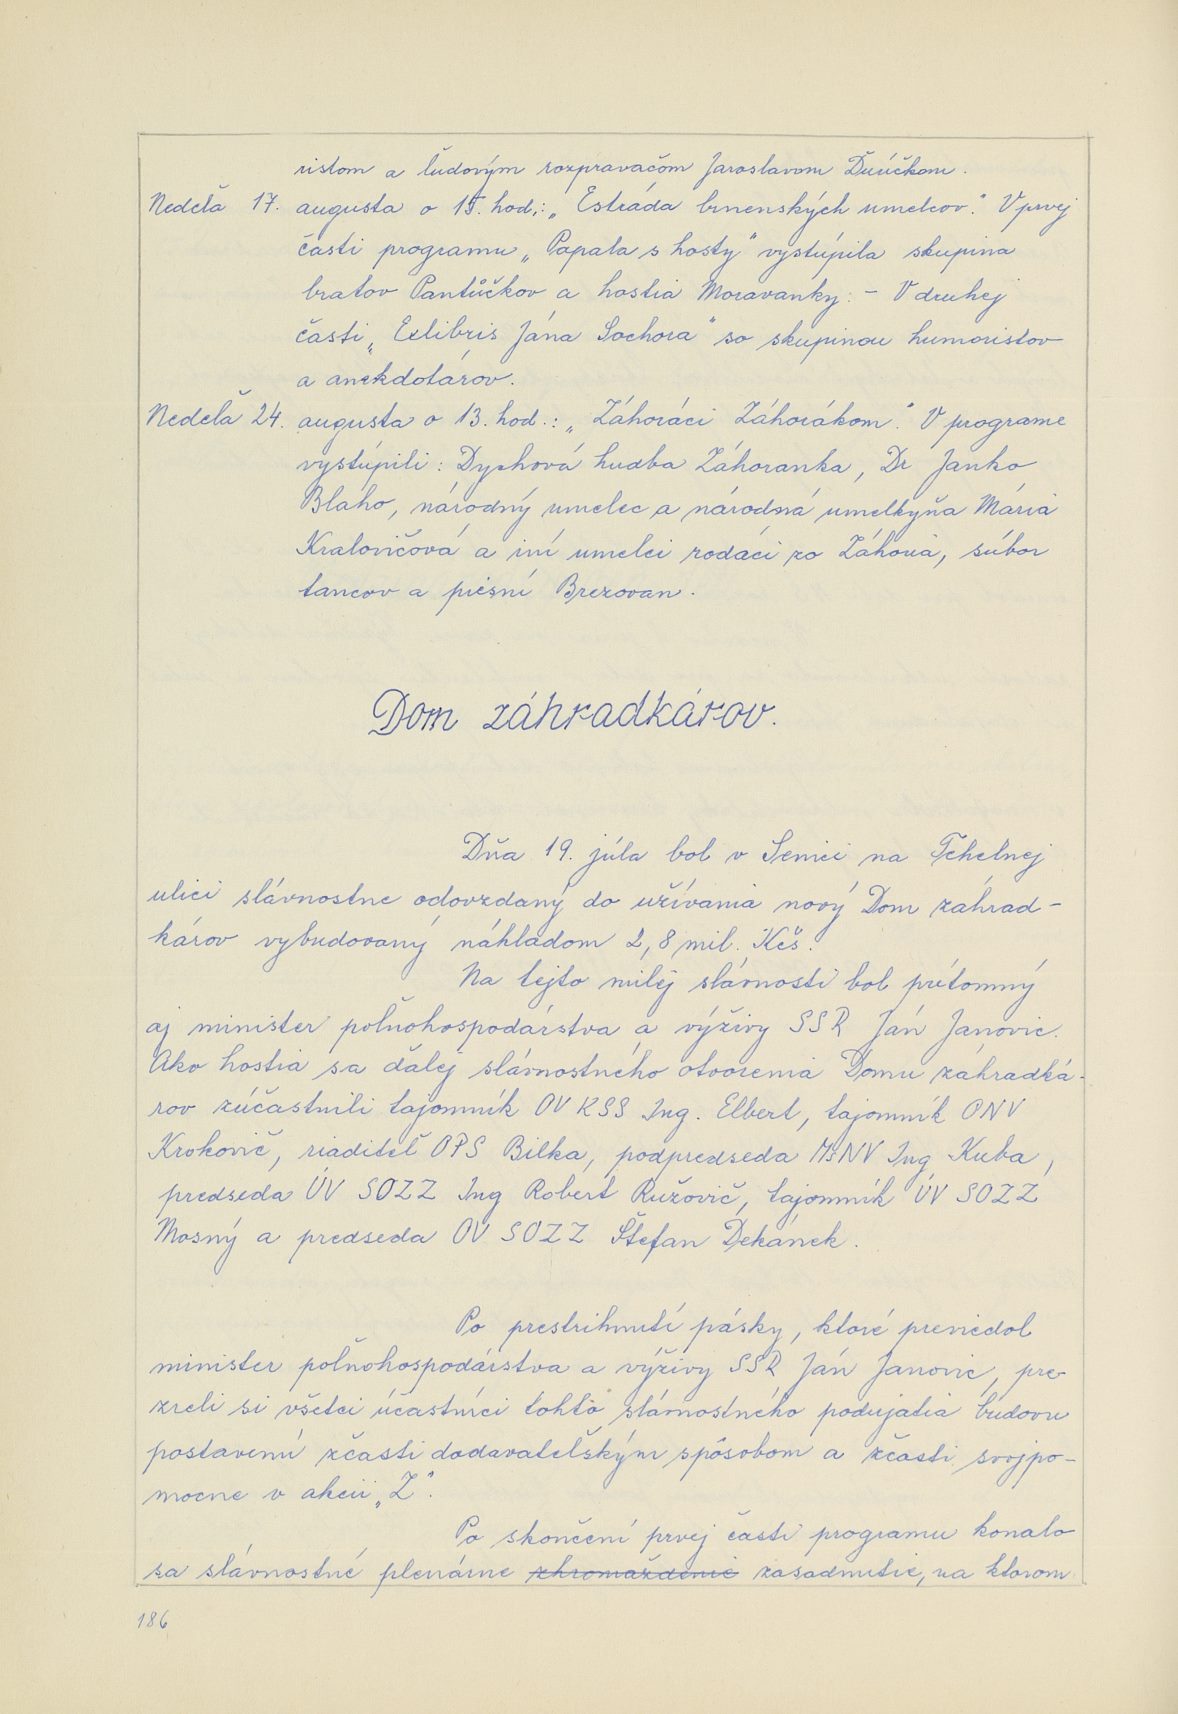 ristom a ľudovým rozpravačom Jaroslavom Ďuúčkom.
Nedeľa 17. augusta o 15. hod.: „Estráda brnenských umelcov." V prvej
časti programu „Papala s hosty" vystúpila skupina
bratov Pantůčkov a hostia Moravanky. - V druhej
časti „Exlibris Jána Sochora" so skupinou humoristov
a anekdotárov.
Nedeľa 24. augusta o 13. hod.: „Záhoráci Záhorákom." V programe
vystúpili: Dychová hudba Záhoranka, Dr Janko
Blaho, národný umelec a národná umelkyňa Mária
Kralovičová a iní umelci rodáci zo Záhoria, súbor
tancov a piesní Brezovan.
Dom záhradkárov.
Dňa 19. júla bol v Senici na Tehelnej
ulici slávnostne odovzdaný do užívania nový Dom záhrad-
károv vybudovaný náhladom 2,8 mil. Kčs.
Na tejto milej slávnosti bol prítomný
aj minister poľnohospodárstva a výživy SSR Ján Janovic.
Ako hostia sa ďalej slávnostného otvorenia Domu záhradká-
rov zúčastnili tajomník OV KSS Ing. Elbert, tajomník ONV
Krokovič, riaditeľ OPS Bilka, podpredseda MsNV Ing Kuba,
predseda ÚV SOZZ Ing Robert Ružovič, tajomník ÚV SOZZ
Mosný a predseda OV SOZZ Štefan Dekánek.
Po prestrihnutí pásky, ktoré previedol
minister poľnohospodárstva a výživy SSR Ján Janovic, pre-
zreli si všetci účastníci tohto slávnostného podujatia budovu
postavenú zčasti dodavateľským spôsobom a zčasti svojpo-
mocne v akcii „Z".
Po skončení prvej časti programu konalo
sa slávnostné plenárne zhromaždenie zasadnutie, na ktorom
186